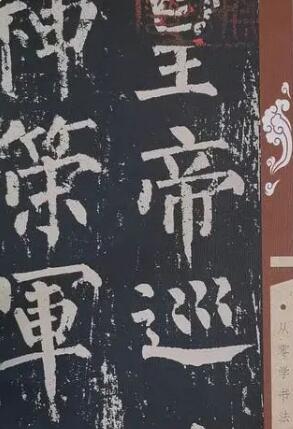 皇帝巡
神策軍
从零学书法